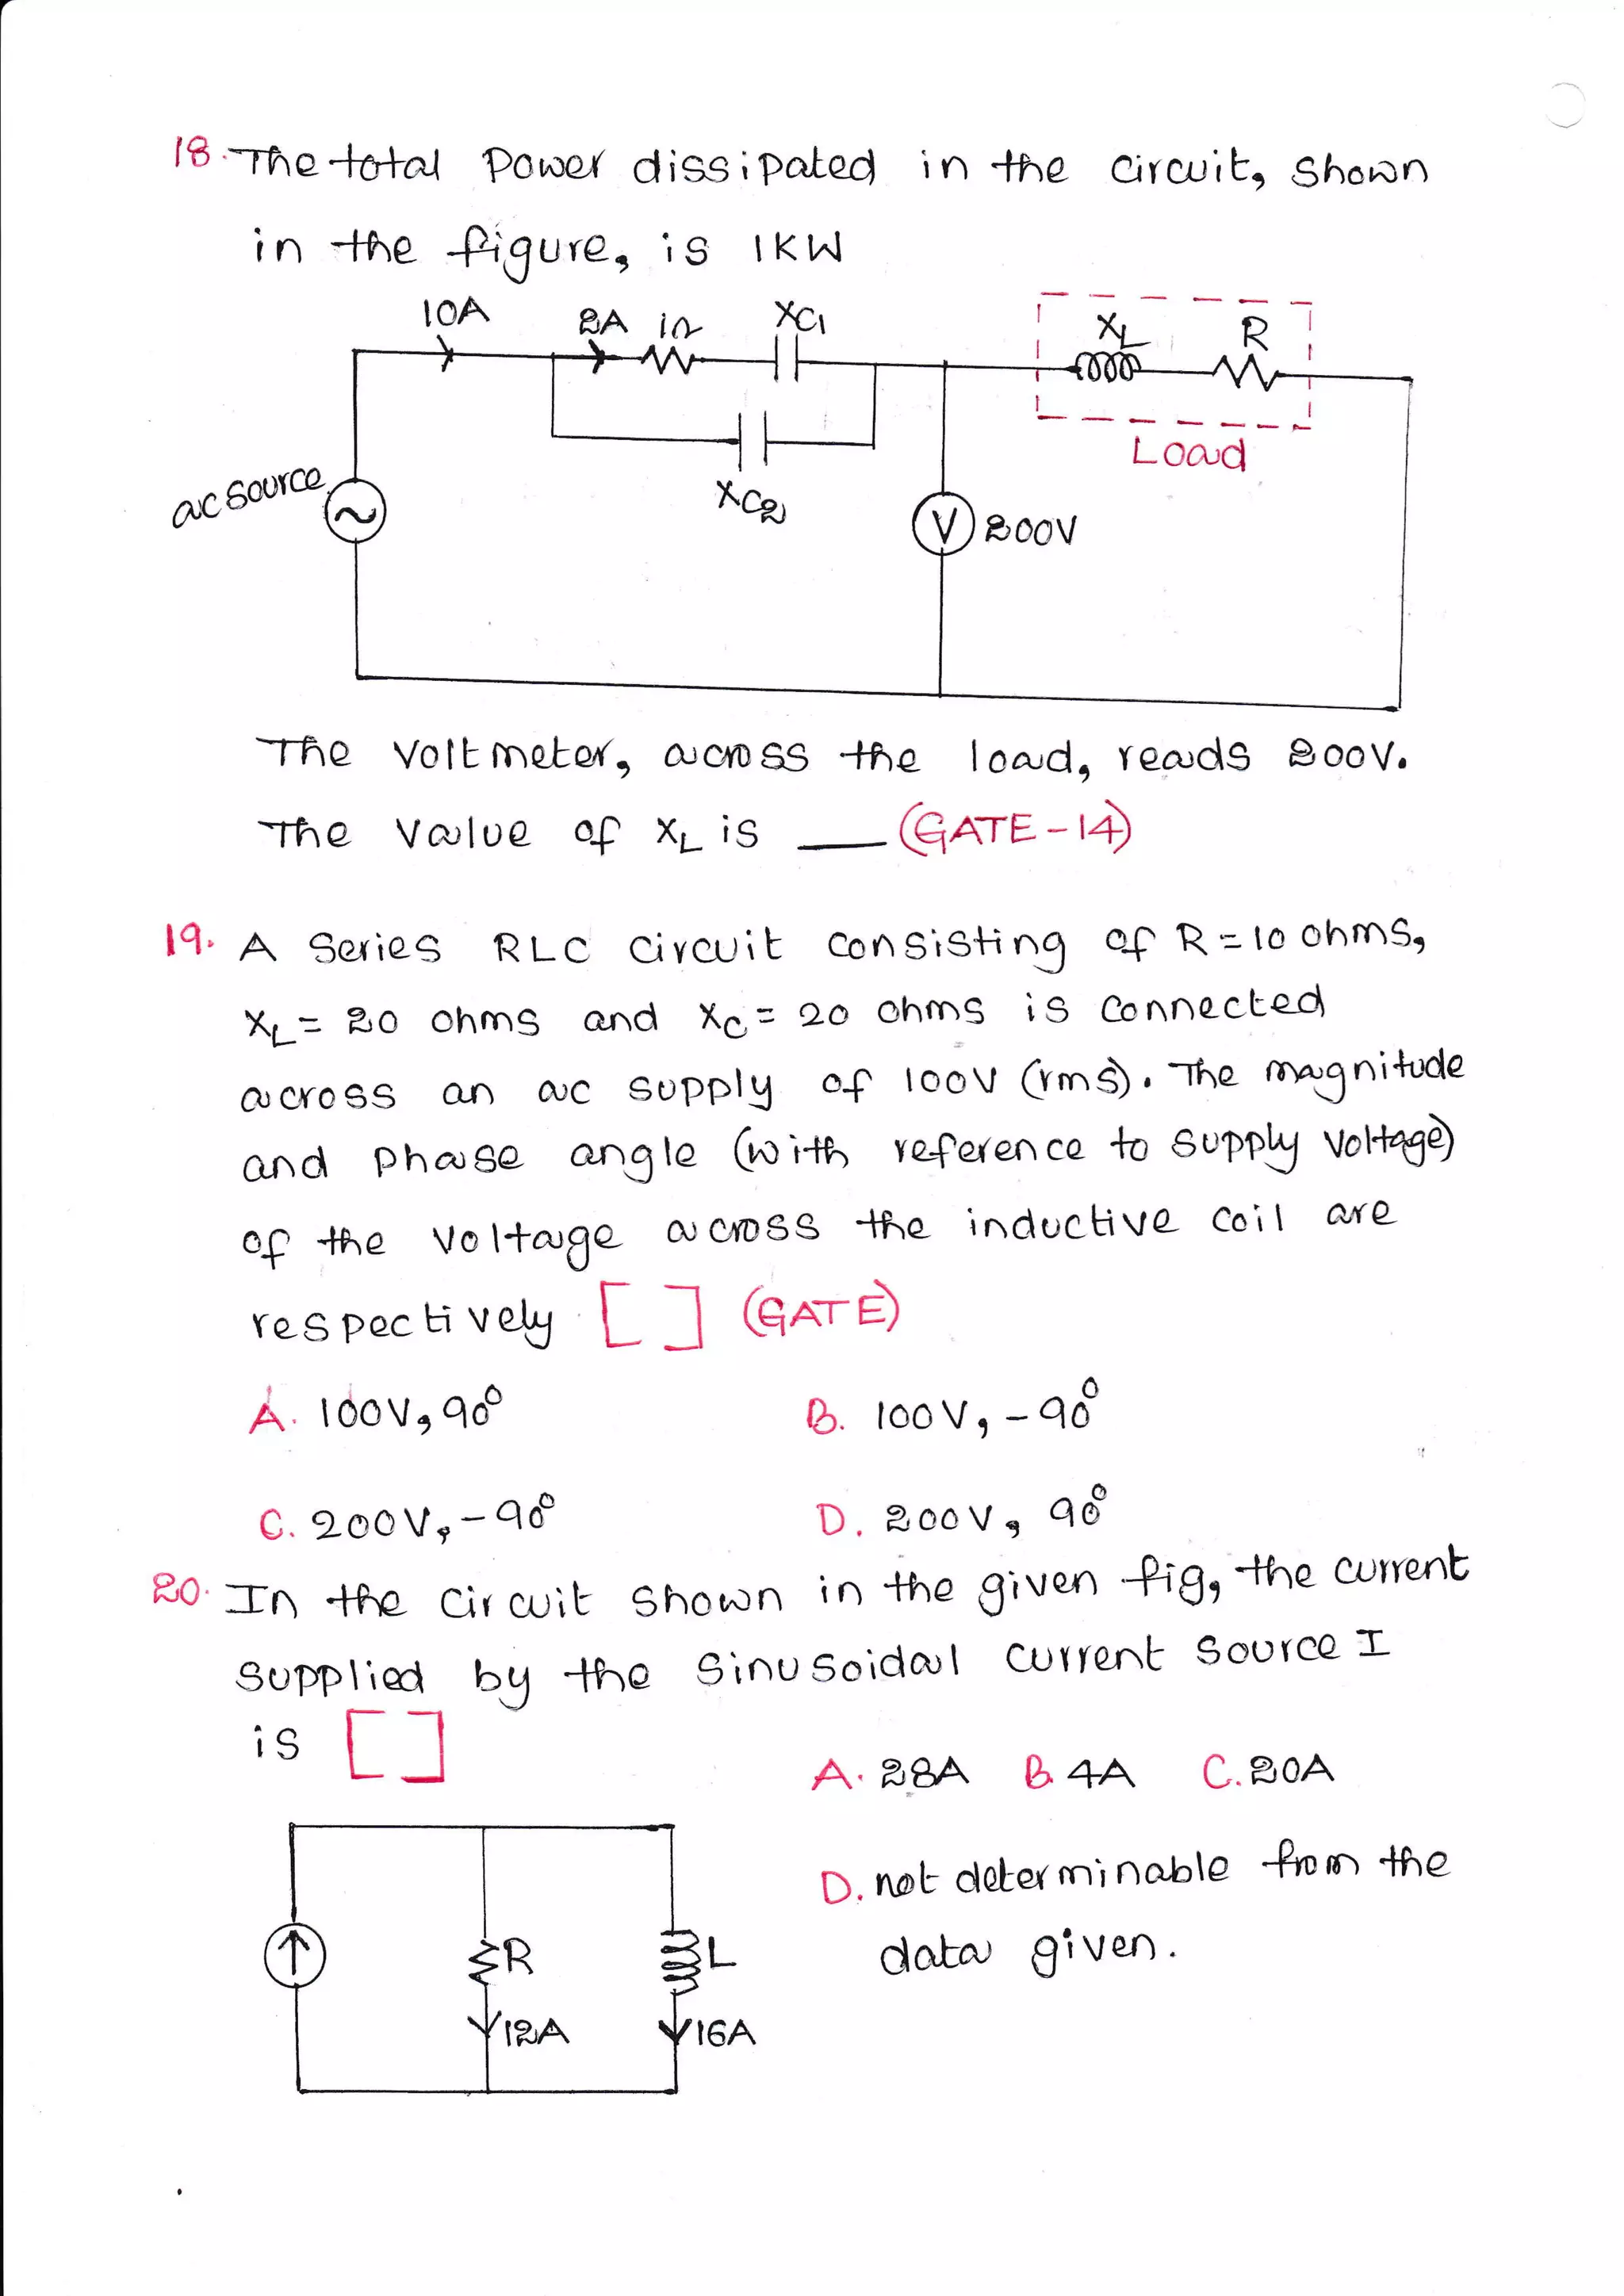 18. The total Power dissipated in the circuit, shown
in the figure, is 1KW
10A 2A 1Ω XC1 XL R
Load
ac source
XC2
V 200V
The Voltmeter, across the load, reads 200V.
The Value of XL is ___ (GATE-14)
19. A Series RLC circuit consisting of R = 10 ohms,
XL = 20 ohms and XC = 20 ohms is connected
across an ac supply of 100V (rms). The magnitude
and phase angle (with reference to supply voltage)
of the Voltage across the inductive coil are
respectively [ ] (GATE)
A. 100V, 90° B. 100V, -90°
C. 200V, -90° D. 200V, 90°
20. In the circuit shown in the given fig, the current
supplied by the sinusoidal current source I
is [ ]
A. 28A B. 4A C. 20A
D. not determinable from the
data given.
R L
12A 16A